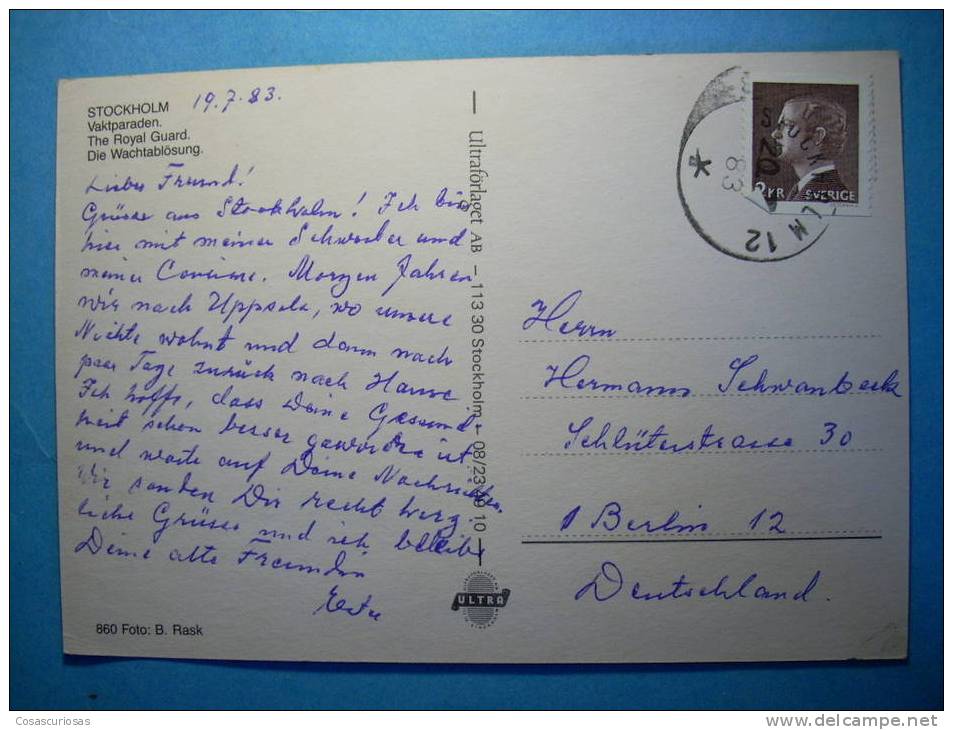 STOCKHOLM
Vaktparaden.
The Royal Guard.
Die Wachtablösung.
19.7.83.
Liebes Freund!
Grüsse aus Stockholm! Ich bin
hier mit meiner Schwester und
meiner Cousine. Morgen fahren
wir nach Uppsala, wo unsere
Nichte wohnt und dann nach
paar Tage zurück nach Hause.
Ich hoffe, dass Deine Gesund
heit schon besser geworden ist
und warte auf Deine Nachrichten.
Wir senden Dir recht herz
liche Grüsse und ich bleibe
Deine alte Freundin
860 Foto: B. Rask
Ultraförlaget AB – 113 30 Stockholm – 08/23 69 10
ULTRA
STOCKHOLM 12
20
83
2 KR SVERIGE
Herrn
Hermann Schwanbeck
Schlüterstrasse 30
1 Berlin 12
Deutschland.
Cosascuriosas
www.delcampe.net